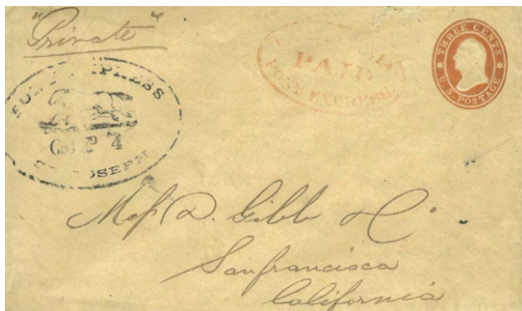 "Private"
PONY EXPRESS
SEP 4
ST. JOSEPH
PAID
PONY EXPRESS
THREE CENTS
U.S. POSTAGE
Mess D. Gibb & Co
Sanfrancisco
California